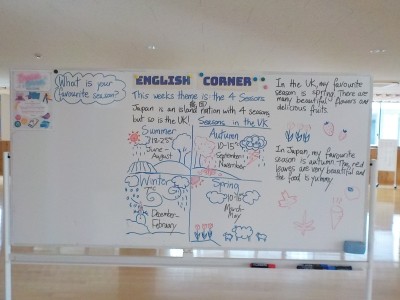 What is your
favourite season?
ENGLISH CORNER
This weeks theme is: the 4 Seasons
Japan is an island nation with 4 seasons,
but so is the UK!
Seasons in the UK
Summer
18-25°
June -
August
Autumn
10-15°
September-
November
Winter
December-
February
Spring
March
May
In the UK, my favourite
season is spring. There are
many beautiful flowers and
delicious fruits.
In Japan, my favourite
season is autumn. The red
leaves are very beautiful and
the food is yummy